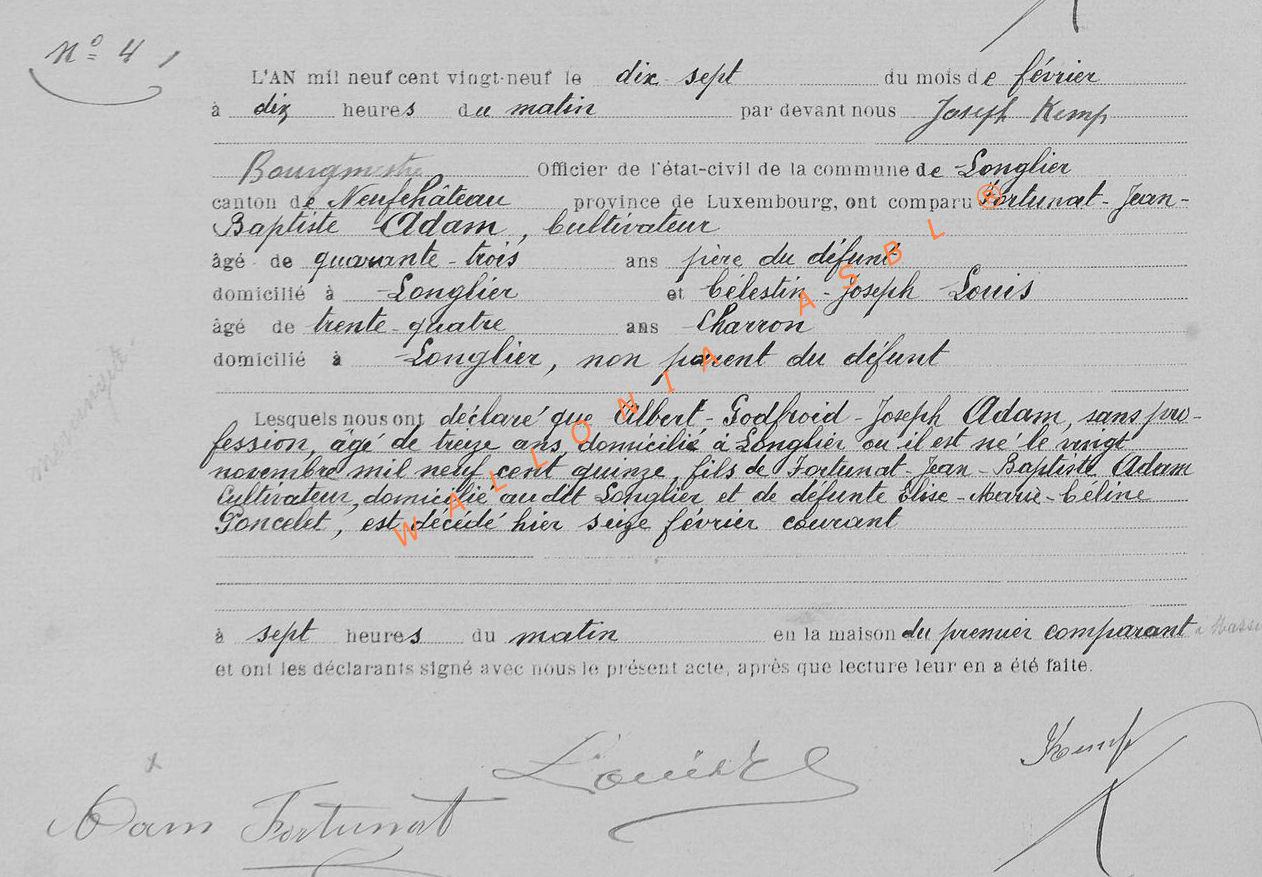 N° 4
L'AN mil neuf cent vingt-neuf le dix sept du mois de février
à dix heures du matin par devant nous Joseph Kemp
Bourgmestre Officier de l'état-civil de la commune de Longlier
canton de Neufchâteau province de Luxembourg, ont comparu Fortunat-Jean-
Baptiste Adam, Cultivateur
âgé de quarante-trois ans père du défunt
domicilié à Longlier et Célestin-Joseph Louis
âgé de trente-quatre ans Charron
domicilié à Longlier, non parent du défunt
Lesquels nous ont déclaré que Albert-Godfroid-Joseph Adam, sans pro-
fession, âgé de treize ans, domicilié à Longlier où il est né le vingt
novembre mil neuf cent quinze, fils de Fortunat-Jean-Baptiste Adam
Cultivateur, domicilié audit Longlier et de défunte Elise-Marie-Céline
Poncelet, est décédé hier seize février courant
à sept heures du matin en la maison du premier comparant à
et ont les déclarants signé avec nous le présent acte, après que lecture leur en a été faite.
Kemp
Louis
Adam Fortunat
WALLONIA ASBL ®